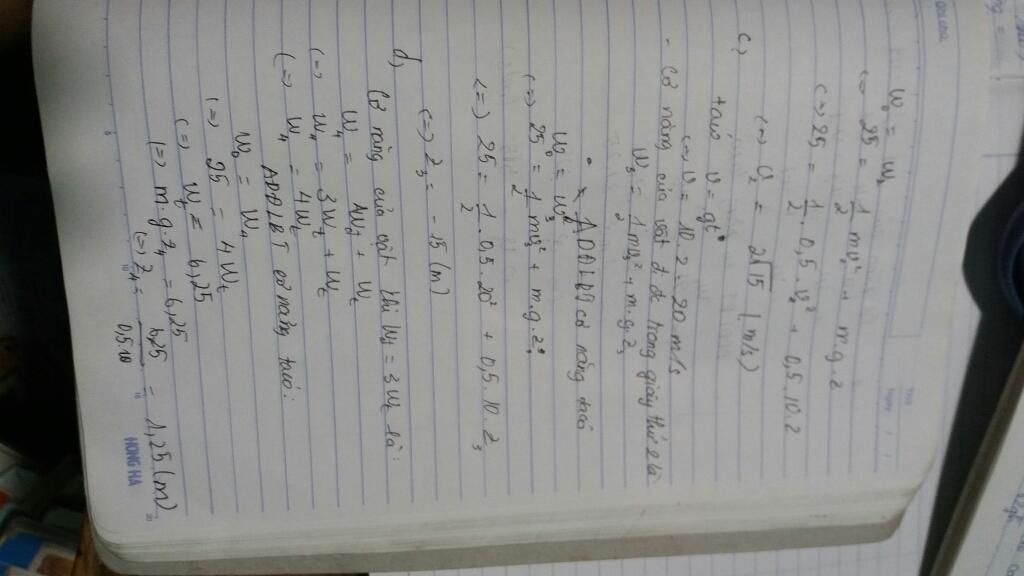 W₀ = W₂
(=) 25 = 1/2 mv₂² + m.g.z
(=) 25 = 1/2 . 0,5 . v₂² + 0,5.10.2
(=) v₂ = 2√15 (m/s)
c,
taco v = gt
(=) v = 10.2 = 20 m/s
- Cơ năng của vật đ đc trong giây thứ 2 là
W₃ = 1/2 mv₃² + m.g.z₃
ADĐLBT cơ năng taco
W₀ = W₃
(=) 25 = 1/2 mv₃² + m.g.z₃
(=) 25 = 1/2 . 0,5.20² + 0,5.10.z₃
(=) z₃ = -15 (m)
d,
Cơ năng của vật khi Wđ = 3Wt là:
W₄ = Wđ + Wt
(=) W₄ = 3Wt + Wt
(=) W₄ = 4Wt
ADĐLBT cơ năng taco:
W₀ = W₄
(=) 25 = 4Wt
(=) Wt = 6,25
(=) m.g.z₄ = 6,25
(=) z₄ = 6,25/0,5.10 = 1,25 (m)
HONG HA